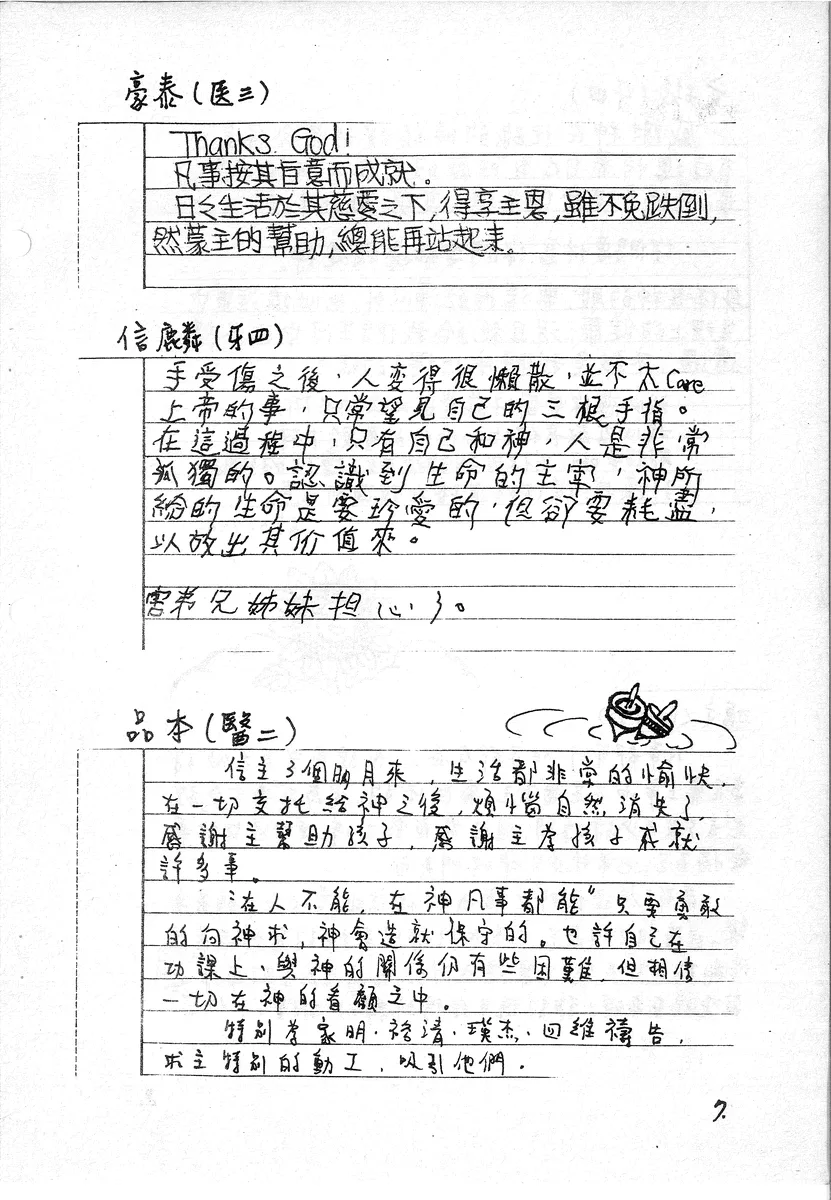 豪泰(医三)
Thanks God!
凡事按其旨意而成就。
日日生活於其慈愛之下,得享主恩,雖不免跌倒,
然蒙主的幫助,總能再站起來.
信麟(牙四)
手受傷之後,人变得很懶散,並不太Care
上帝的事,只常望見自己的三根手指。
在這過程中,只有自己和神,人是非常
孤獨的。認識到生命的主宰,神所
給的生命是要珍愛的,但卻要耗盡,
以放出其价值來。
害弟兄姊妹担心了。
品本(醫二)
信主3個多月來,生活都非常的愉快,
在一切交托給神之後,煩惱自然消失了,
感謝主幫助孩子,感謝主為孩子成就
許多事。
"在人不能,在神凡事都能"只要勇敢
的向神求,神會造就保守的。也許自己在
功課上、與神的關係仍有些困難,但相信
一切在神的看顧之中。
特別為家明、裕清、瑛杰、四維禱告,
求主特別的動工,吸引他們。
7.